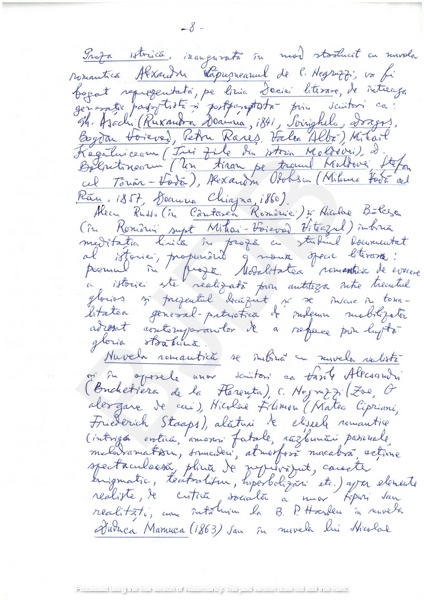 - 8 -
Proza istorică, inaugurată în mod strălucit cu nuvela
romantică Alexandru Lăpușneanul de C. Negruzzi, va fi
bogat reprezentată, pe linia Daciei literare, de întreaga
generație pașoptistă și postpașoptistă prin scriitori ca:
Gh. Asachi (Ruxandra Doamna, 1841, Svidrighelo, Dragoș,
Bogdan Voievod, Petru Rareș, Valea Albă), Mihail
Kogălniceanu (Trei zile din istoria Moldovei), D.
Bolintineanu (Un tiran pe tronul Moldovei, Ștefan
cel Tânăr-Vodă), Alexandru Odobescu (Mihnea Vodă cel
Rău, 1857, Doamna Chiajna, 1860).
Alecu Russo (în Cântarea României) și Nicolae Bălcescu
(în Românii supt Mihai-Voievod Viteazul) îmbină
meditația lirică în proză cu studiul documentat
al istoriei, propunând o nouă specie literară:
poemul în proză. Modalitatea romantică de evocare
a istoriei este realizată prin antiteza între trecutul
glorios și prezentul decăzut și se înscrie în tona-
litatea general-patriotică de îndemn mobilizator
adresat contemporanilor de a reface prin luptă
gloria străbună.
Nuvela romantică se îmbină cu nuvela realistă
în operele unor scriitori ca Vasile Alecsandri
(Buchetiera de la Florența), C. Negruzzi (Zoe, O
alergare de cai), Nicolae Filimon (Mateo Cipriani,
Friederich Staaps), alături de clișeele romantice
(intriga erotică, amoruri fatale, răzbunări pasionale,
melodramatism, sinucideri, atmosferă macabră, acțiune
spectaculoasă, plină de neprevăzut, caracter
enigmatic, teatralism, hiperbolizări etc.) apar elemente
realiste, de critică socială a unor tipuri sau
realități, cum întâlnim la B. P. Hasdeu în nuvela
Duduca Mamuca (1863) sau în nuvela lui Nicolae